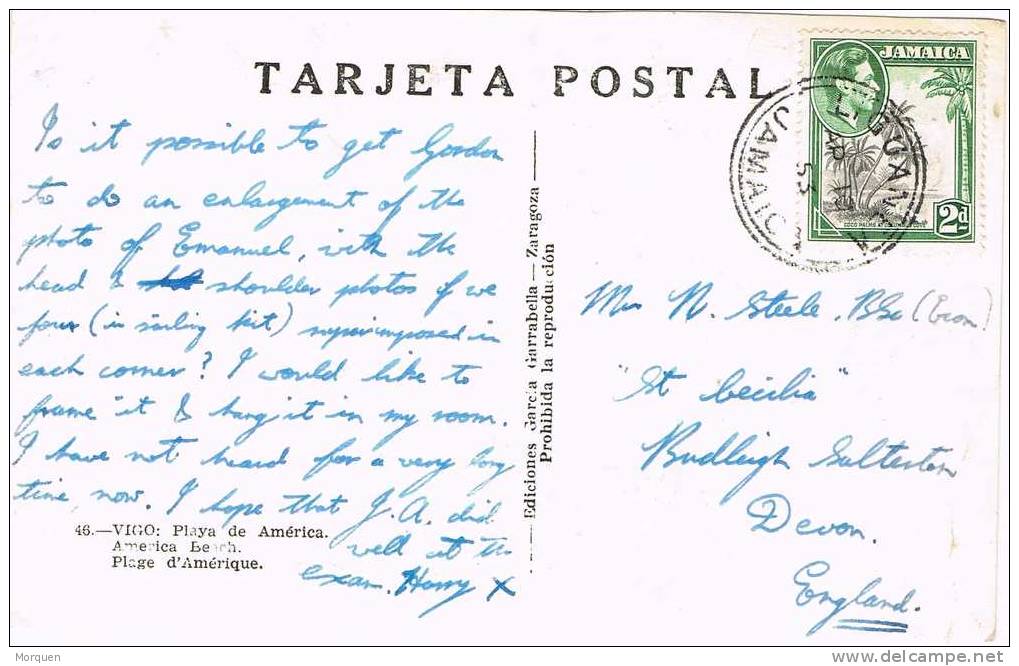 TARJETA POSTAL
Is it possible to get Gordon
to do an enlargement of the
photo of Emanuel, with the
head & shoulder photos of we
four (in sailing kit) superimposed in
each corner? I would like to
frame it & hang it in my room.
I have not heard for a very long
time, now. I hope that J.A. did
well at the
exam. Harry X
46.—VIGO: Playa de América.
America Beach.
Plage d'Amérique.
Ediciones García Garrabella — Zaragoza
Prohibida la reproducción
JAMAICA
COCO PALMS AT
2d
JAMAICA
AP
53
N. Steele, BSc (Econ)
"St Cecilia"
Budleigh Salterton
Devon.
England.
Morquen
delcampe.net